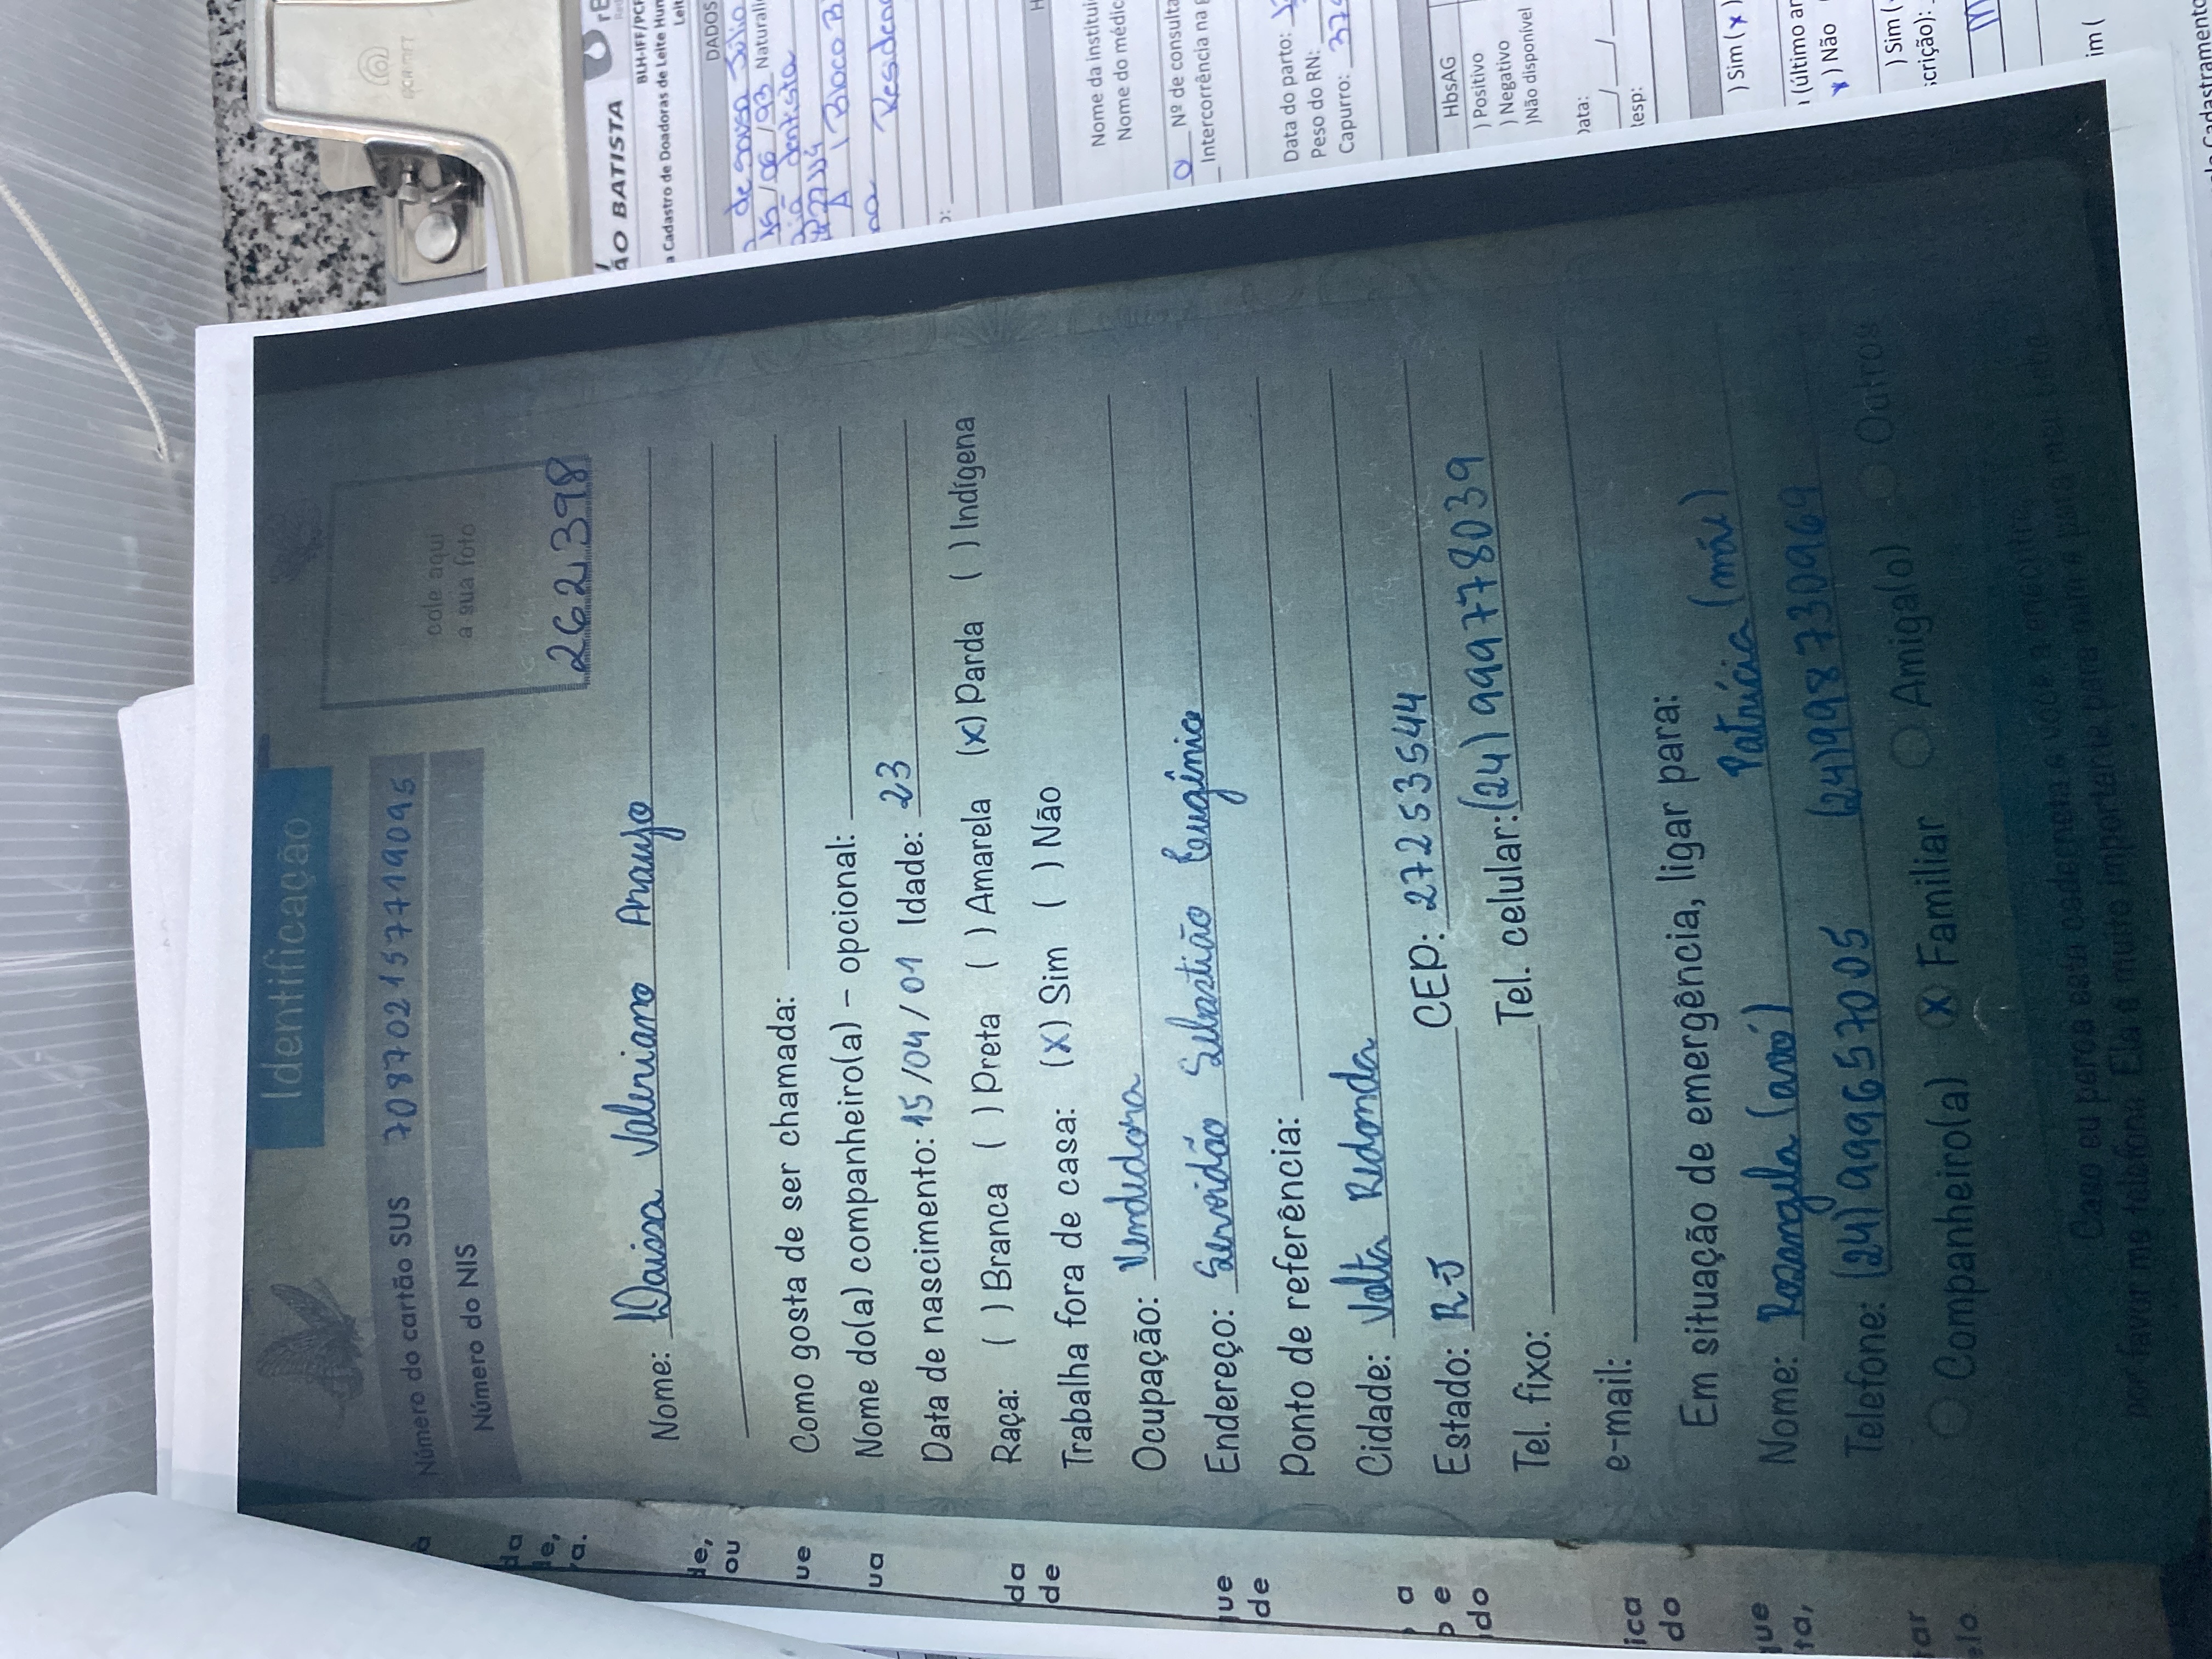 Identificação
cole aqui
a sua foto
Número do cartão SUS 708702157719095
Número do NIS
262.398
Nome: Daissa Valeriano Araujo
Como gosta de ser chamada:
Nome do(a) companheiro(a) - opcional:
Data de nascimento: 15/04/01 Idade: 23
Raça: ( ) Branca ( ) Preta ( ) Amarela (x) Parda ( ) Indígena
Trabalha fora de casa: (x) Sim ( ) Não
Ocupação: Vendedora
Endereço: Servidão Sebastião Eugênio
Ponto de referência:
Cidade: Volta Redonda
Estado: RJ CEP: 27253544
Tel. fixo: Tel. celular: (24) 999778039
e-mail:
Em situação de emergência, ligar para:
Nome: Rosangela (avó) Patrícia (mãe)
Telefone: (24) 999657005 (24) 999873 0969
Companheiro(a) (x) Familiar Amiga(o) Outros
Caso eu perca esta caderneta e você a encontre,
por favor me telefone. Ela é muito importante para mim e para meu bebê.
ÃO BATISTA
BLH-IFF/
a Cadastro de Doadoras de Leite Hum
DADOS
de Sousa Júlio
15/06/93 Naturali
dentista
A | Bloco B
Residenc
Nome da institui
Nome do médic
0 Nº de consulta
Intercorrência na g
Data do parto:
Peso do RN:
Capurro: 37
HbsAG
) Positivo
) Negativo
)Não disponível
Data:
) Sim (x)
(último an
x) Não
) Sim (
scrição):
im (
Cadastramento
da
de,
va.
de,
ou
ue
ua
da
de
ue
de
a
e
do
ica
do
que
ta,
ar
elo.